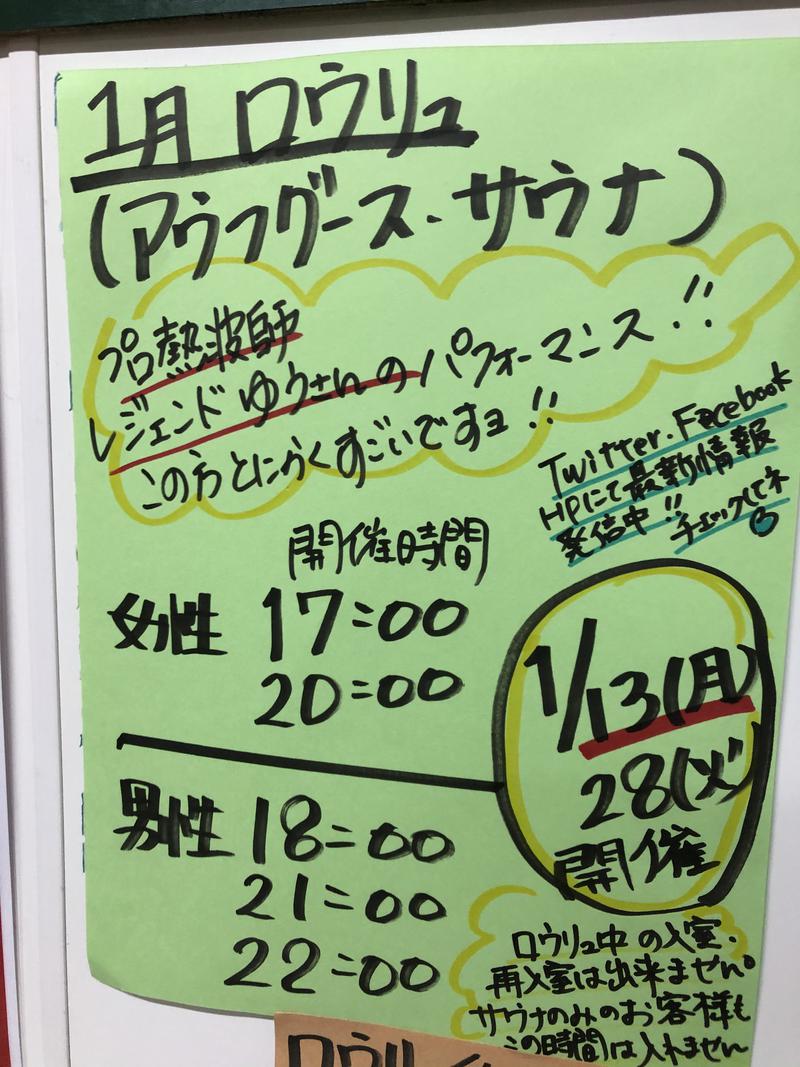 1月 ロウリュ
(アウフグース・サウナ)
プロ熱波師
レジェンド ゆうさんの パフォーマンス!!
この方とにかくすごいですョ!!
Twitter.Facebook
HPにて最新情報
発信中!!
チェックしてネ
開催時間
女性 17:00
20:00
1/13(月)
28(火)
開催
男性 18:00
21:00
22:00
ロウリュ中の入室・
再入室は出来ません。
サウナのみのお客様も
この時間は入れません